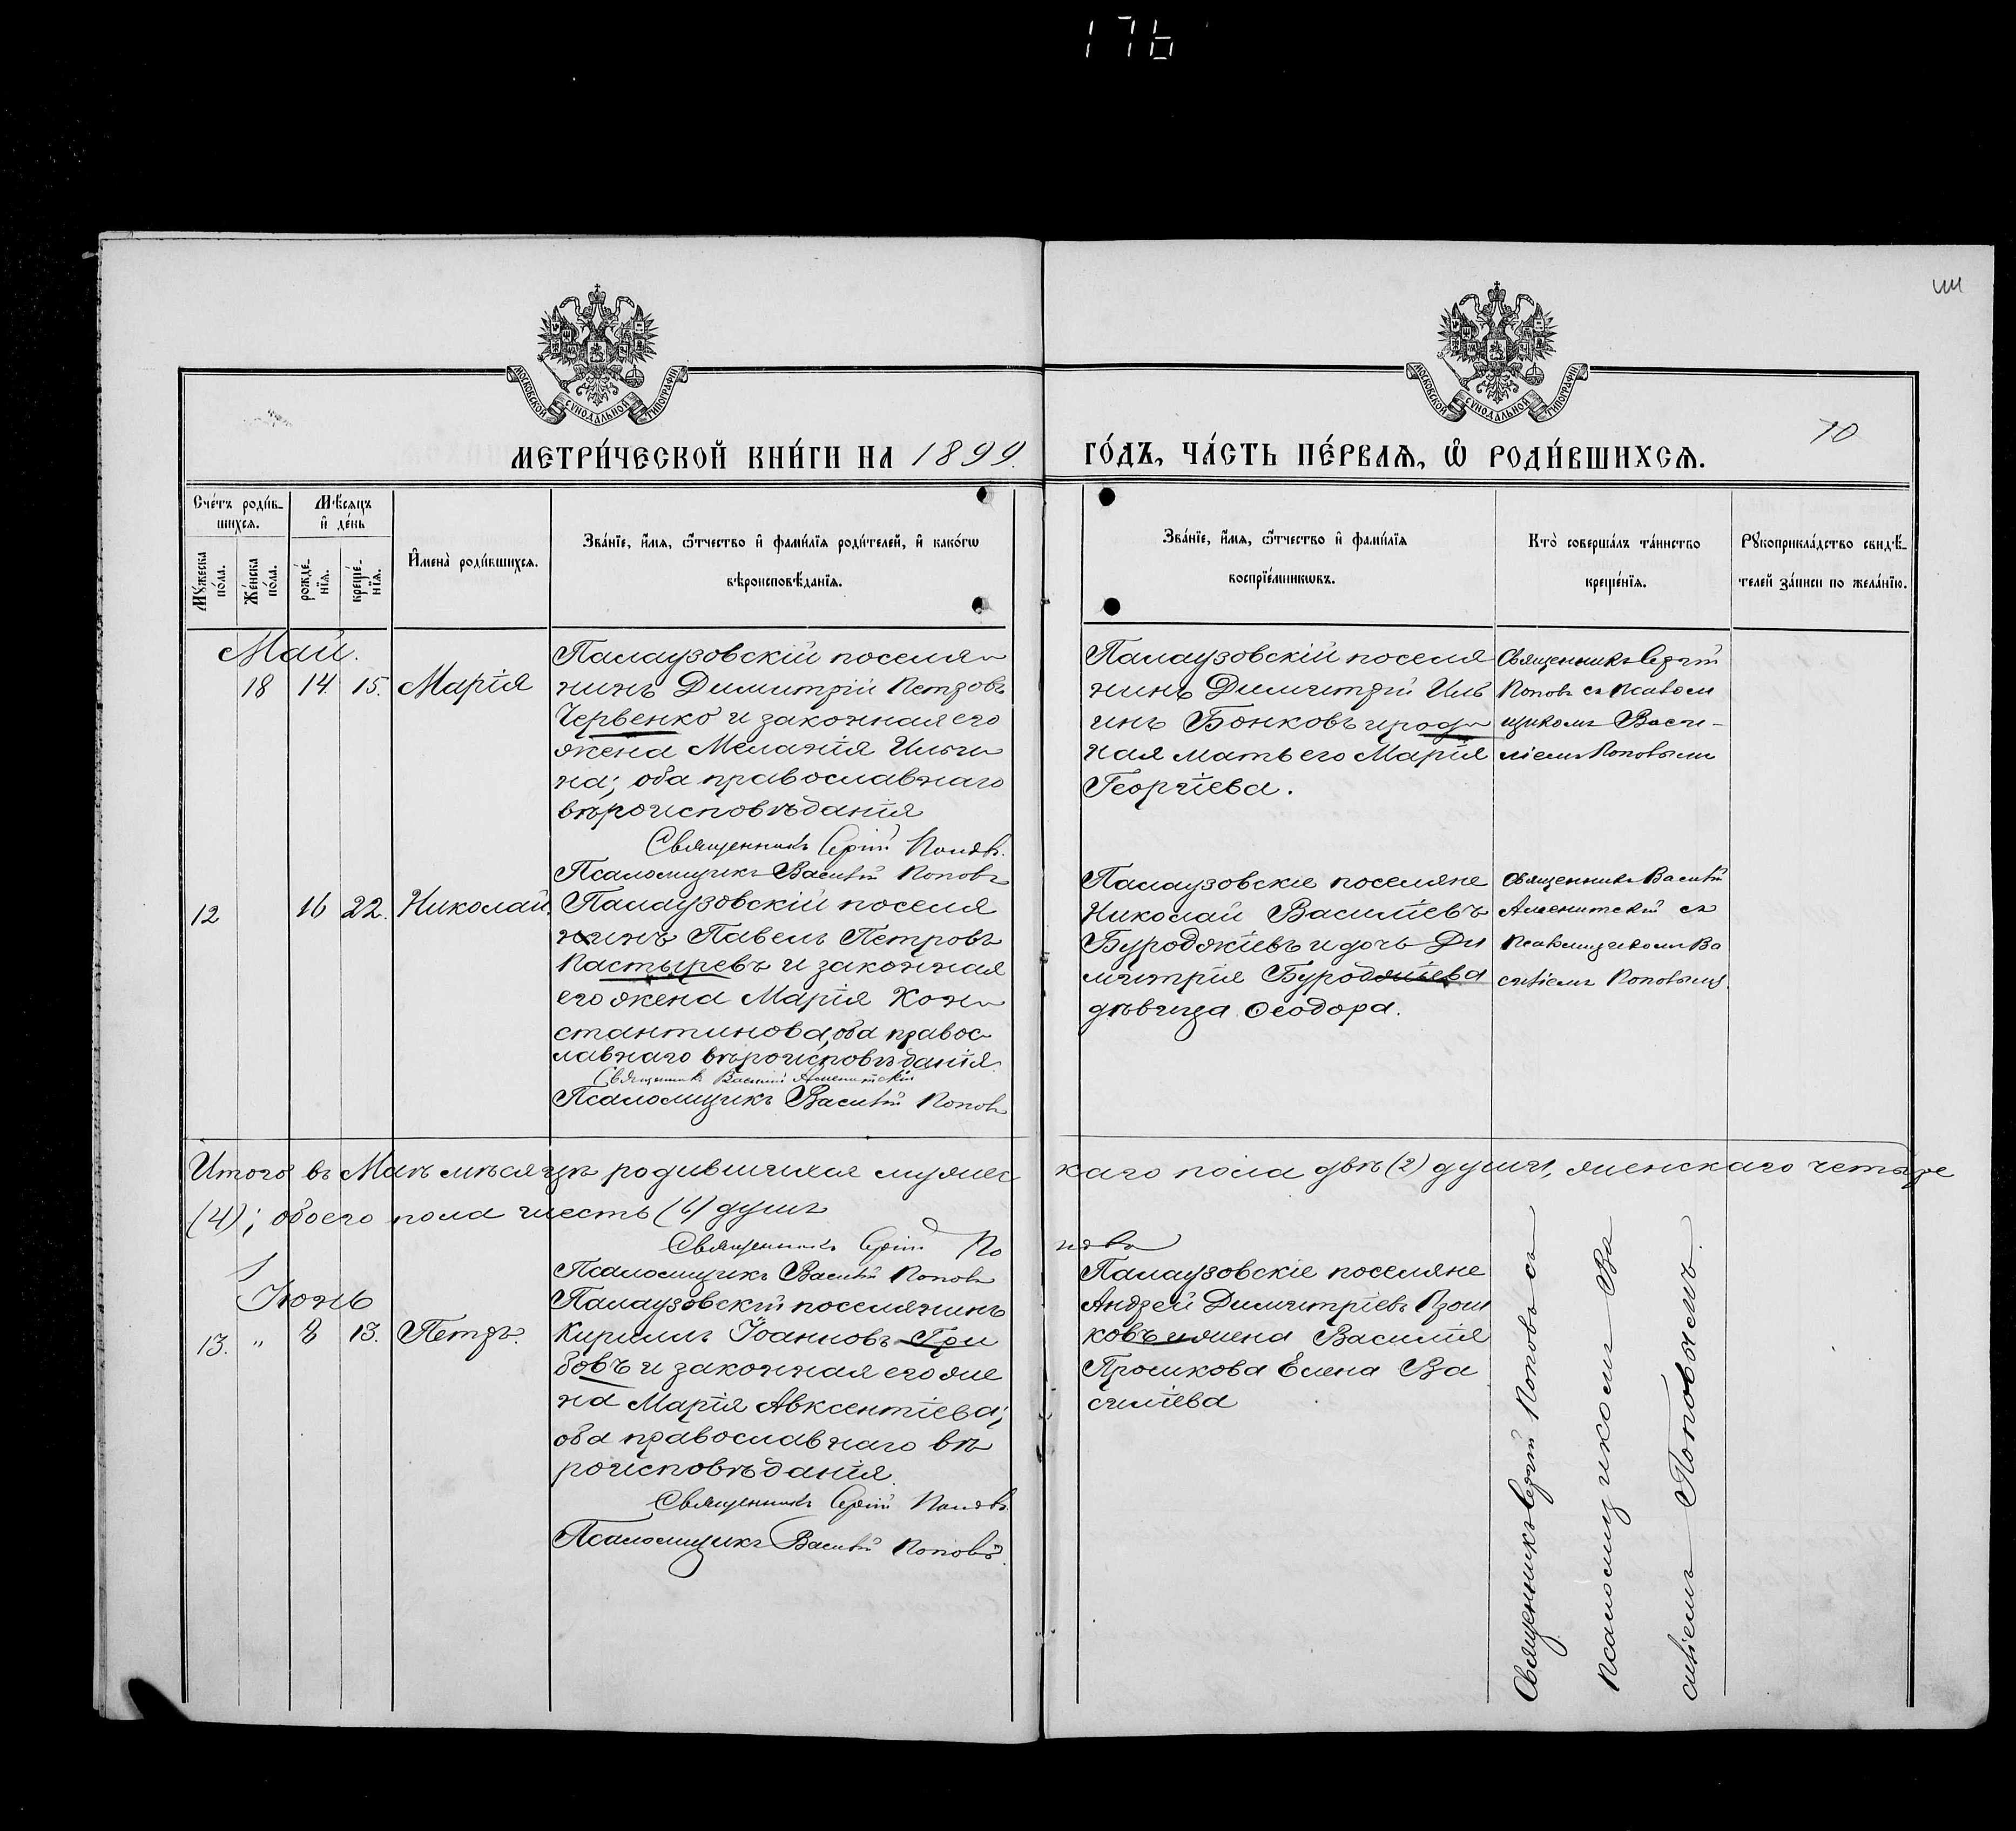 176
МОСКОВСКОЙ СѴНОДАЛЬНОЙ ТИПОГРАФІИ
МОСКОВСКОЙ СѴНОДАЛЬНОЙ ТИПОГРАФІИ
10
МЕТРИ́ЧЕСКОЙ КНИ́ГИ НА 1899. ГО́ДЪ, ЧА́СТЬ ПЕ́РВАѦ, Ѡ҆ РОДИ́ВШИХСѦ.
Сче́тъ роди́в-
шихсѧ.
Мꙋ́жеска по́ла.
Же́нска по́ла.
Мѣ́сѧцъ
и҆ де́нь
рожде́-
нїѧ.
креще́-
нїѧ.
И҆мена̀ роди́вшихсѧ.
Зва́нїе, и҆́мѧ, ѻ҆́тчество и҆ фами́лїѧ роди́телей, и҆ како́гѡ
вѣроисповѣ́данїѧ.
Зва́нїе, и҆́мѧ, ѻ҆́тчество и҆ фами́лїѧ
воспрїе́мникѡвъ.
Кто̀ соверша́лъ та́инство
креще́нїѧ.
Рꙋкоприкла́дство свидѣ́-
телей за́писи по жела́нїю.
Май.
18 14. 15. Марія
Палаузовскій поселя-
нинъ Димитрій Петровъ
Червенко и законная его
жена Меланія Ильи-
на; оба православнаго
вѣроисповѣданія
Священникъ Сергій Поповъ.
Псаломщикъ Василій Поповъ
Палаузовскій поселя
нинъ Димитрій Иль
инъ Бонковъ и род-
ная мать его Марія
Георгіева.
Священникъ Сергій
Поповъ съ псалом
щикомъ Васи-
ліемъ Поповымъ
12 16 22. Николай.
Палаузовскій поселя
нинъ Павелъ Петровъ
Пастыревъ и законная
его жена Марія Кон-
стантинова, оба правос
лавнаго вѣроисповѣданія.
Священникъ Василій
Псаломщикъ Василій Поповъ
Палаузовскіе поселяне
Николай Василіевъ
Бурoджіевъ и дочь Ди
митрія Буроджіева
дѣвица Ѳеодора.
Священникъ Василій
съ
Псаломщикомъ Ва
силіемъ Поповымъ.
Итого въ Маѣ мѣсяцѣ родившихся мужес каго пола двѣ (2) души, женскаго четыре
(4); обоего пола шесть (6) душъ
Священникъ Сергій По повъ
Псаломщикъ Василій Поповъ
Іюнь
13. „ 8 13. Петръ.
Палаузовскій поселянинъ
Кириллъ Іоанновъ Гри
бовъ и законная его же
на Марія Авксентіева;
оба православнаго вѣ
роисповѣданія.
Священникъ Сергій Поповъ.
Псаломщикъ Василій Поповъ.
Палаузовскіе поселяне
Андрей Димитріевъ Прош
ковъ и жена Василія
Прошкова Елена Ва
силіева
Священникъ Сергій Поповъ съ
псаломщикомъ Ва
силіемъ Поповымъ.